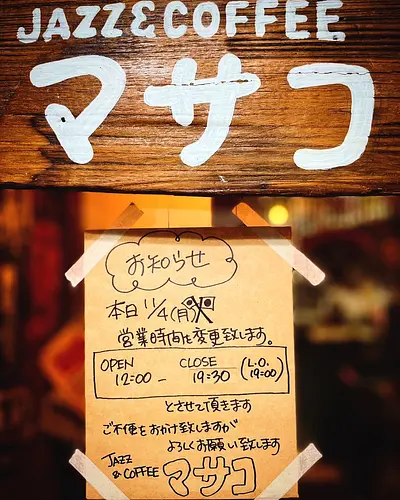 JAZZ&COFFEE
マサコ
お知らせ
本日 11/4(月)
営業時間を変更致します。
OPEN CLOSE (L.O.
12:00 - 19:30 19:00)
とさせて頂きます
ご不便をおかけ致しますが
よろしくお願い致します
JAZZ
&COFFEE マサコ